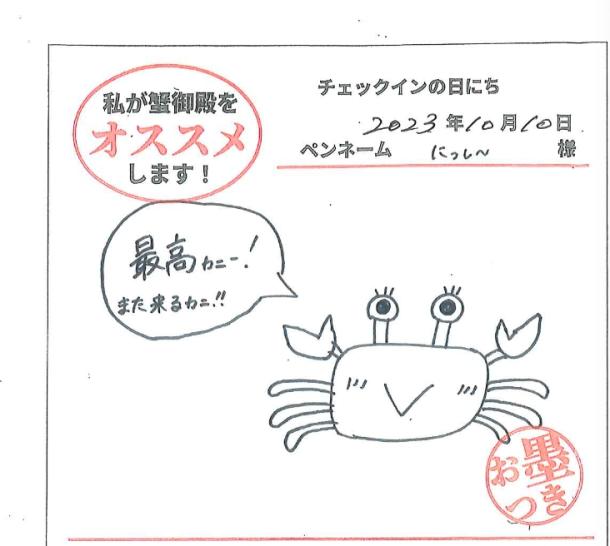 私が蟹御殿を
オススメ
します！
チェックインの日にち
2023年10月10日
ペンネーム にっし〜 様
最高カニー！
また来るカニ!!
お墨
つき